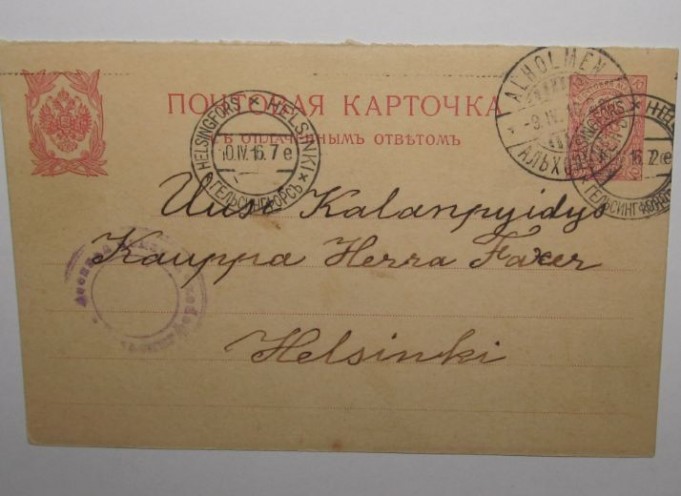 ПОЧТОВАЯ КАРТОЧКА
СЪ ОПЛАЧЕННЫМЪ ОТВѢТОМЪ
HELSINGFORS × HELSINKI × ГЕЛЬСИНГФОРСЪ
10.IV.16.7 e
ALHOLMEN
-9.IV.1
АЛЬХО
HELSINGFORS × HELS
16.2 e
ГЕЛЬСИНГФОРС
Uusi Kalanpyidys
Kauppa Herra Faxer
Helsinki